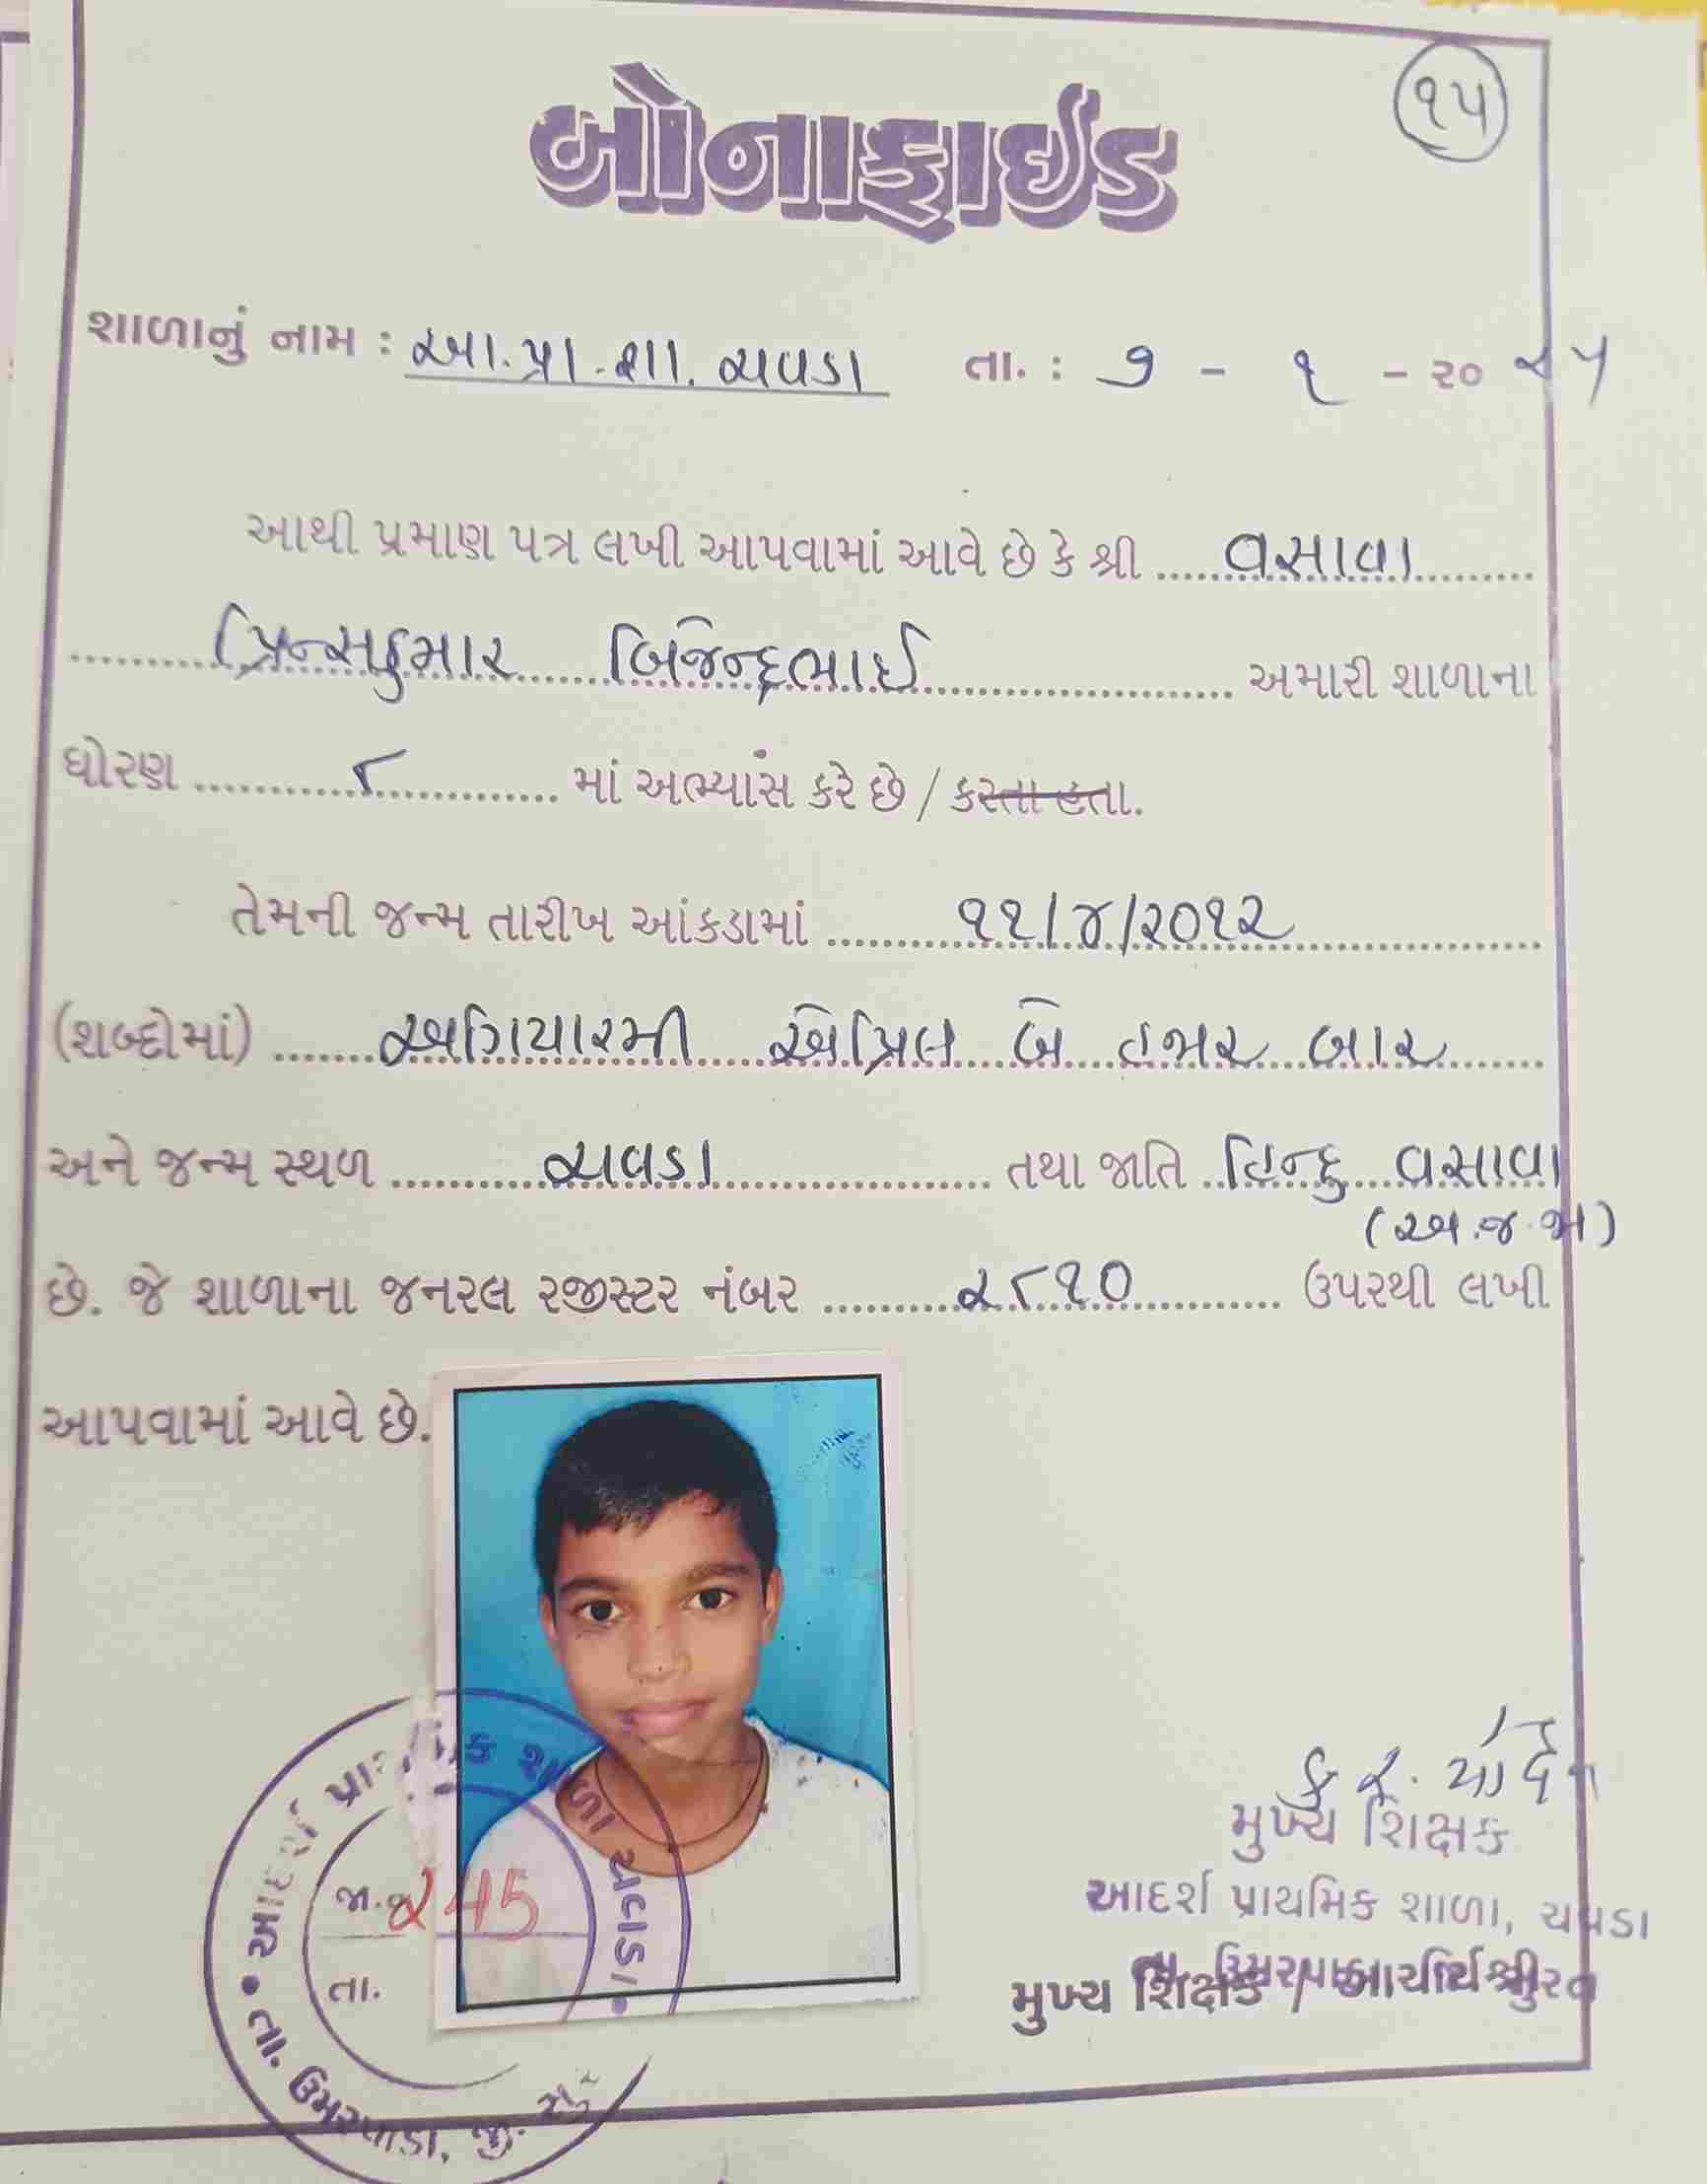 ૧૫
બોનાફાઈડ
શાળાનું નામ : આ.પ્રા.શા. ચવડા તા. : ૭ - ૧ - ૨૦ ૨૫
આથી પ્રમાણ પત્ર લખી આપવામાં આવે છે કે શ્રી વસાવા
પ્રિન્સકુમાર બિજેન્દ્રભાઈ અમારી શાળાના
ધોરણ ૮ માં અભ્યાસ કરે છે / કરતા હતા.
તેમની જન્મ તારીખ આંકડામાં ૧૧/૪/૨૦૧૨
(શબ્દોમાં) અગિયારમી એપ્રિલ બે હજાર બાર
અને જન્મ સ્થળ ચવડા તથા જાતિ હિન્દુ વસાવા
(અ.જ.જા)
છે. જે શાળાના જનરલ રજીસ્ટર નંબર ૨૮૧૦ ઉપરથી લખી
આપવામાં આવે છે.
મુખ્ય શિક્ષક
આદર્શ પ્રાથમિક શાળા, ચવડા
મુખ્ય શિક્ષક / આચાર્યશ્રી
આદર્શ પ્રાથમિક શાળા ચવડા
જા. 245
તા.
તા. ઉમરપાડા, જી.